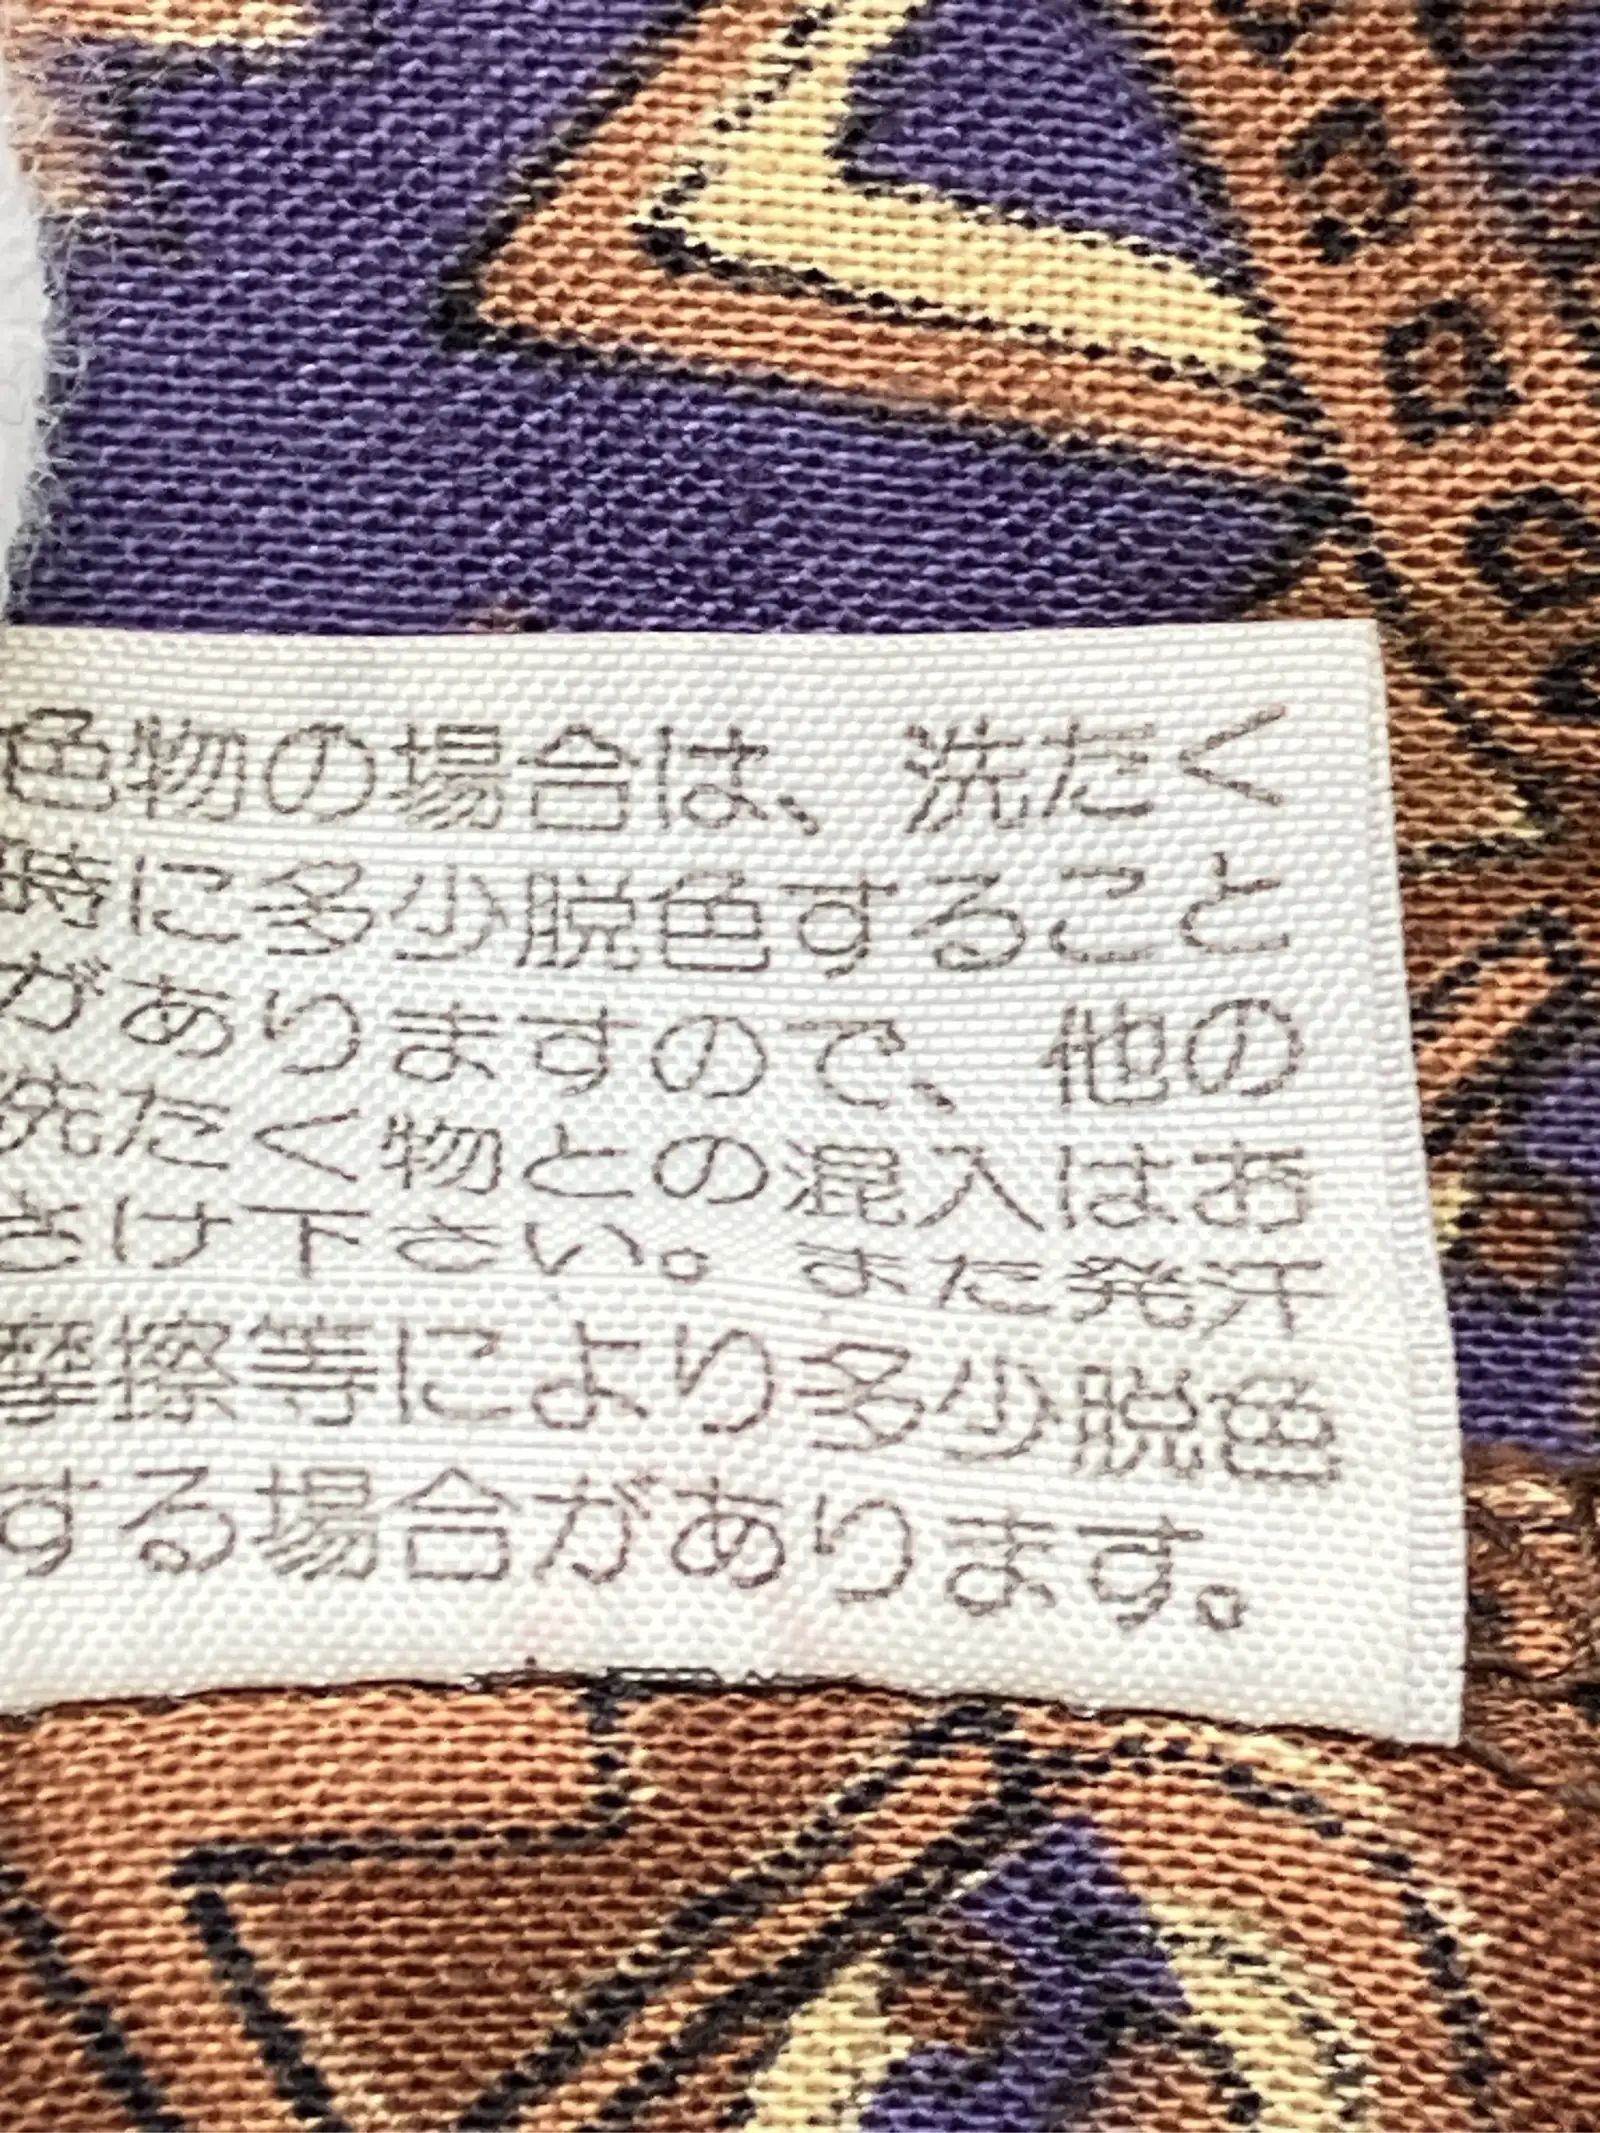 色物の場合は、洗だく
時に多少脱色すること
がありますので、他の
洗たく物との混入はお
さけ下さい。また発汗
摩擦等により多少脱色
する場合があります。